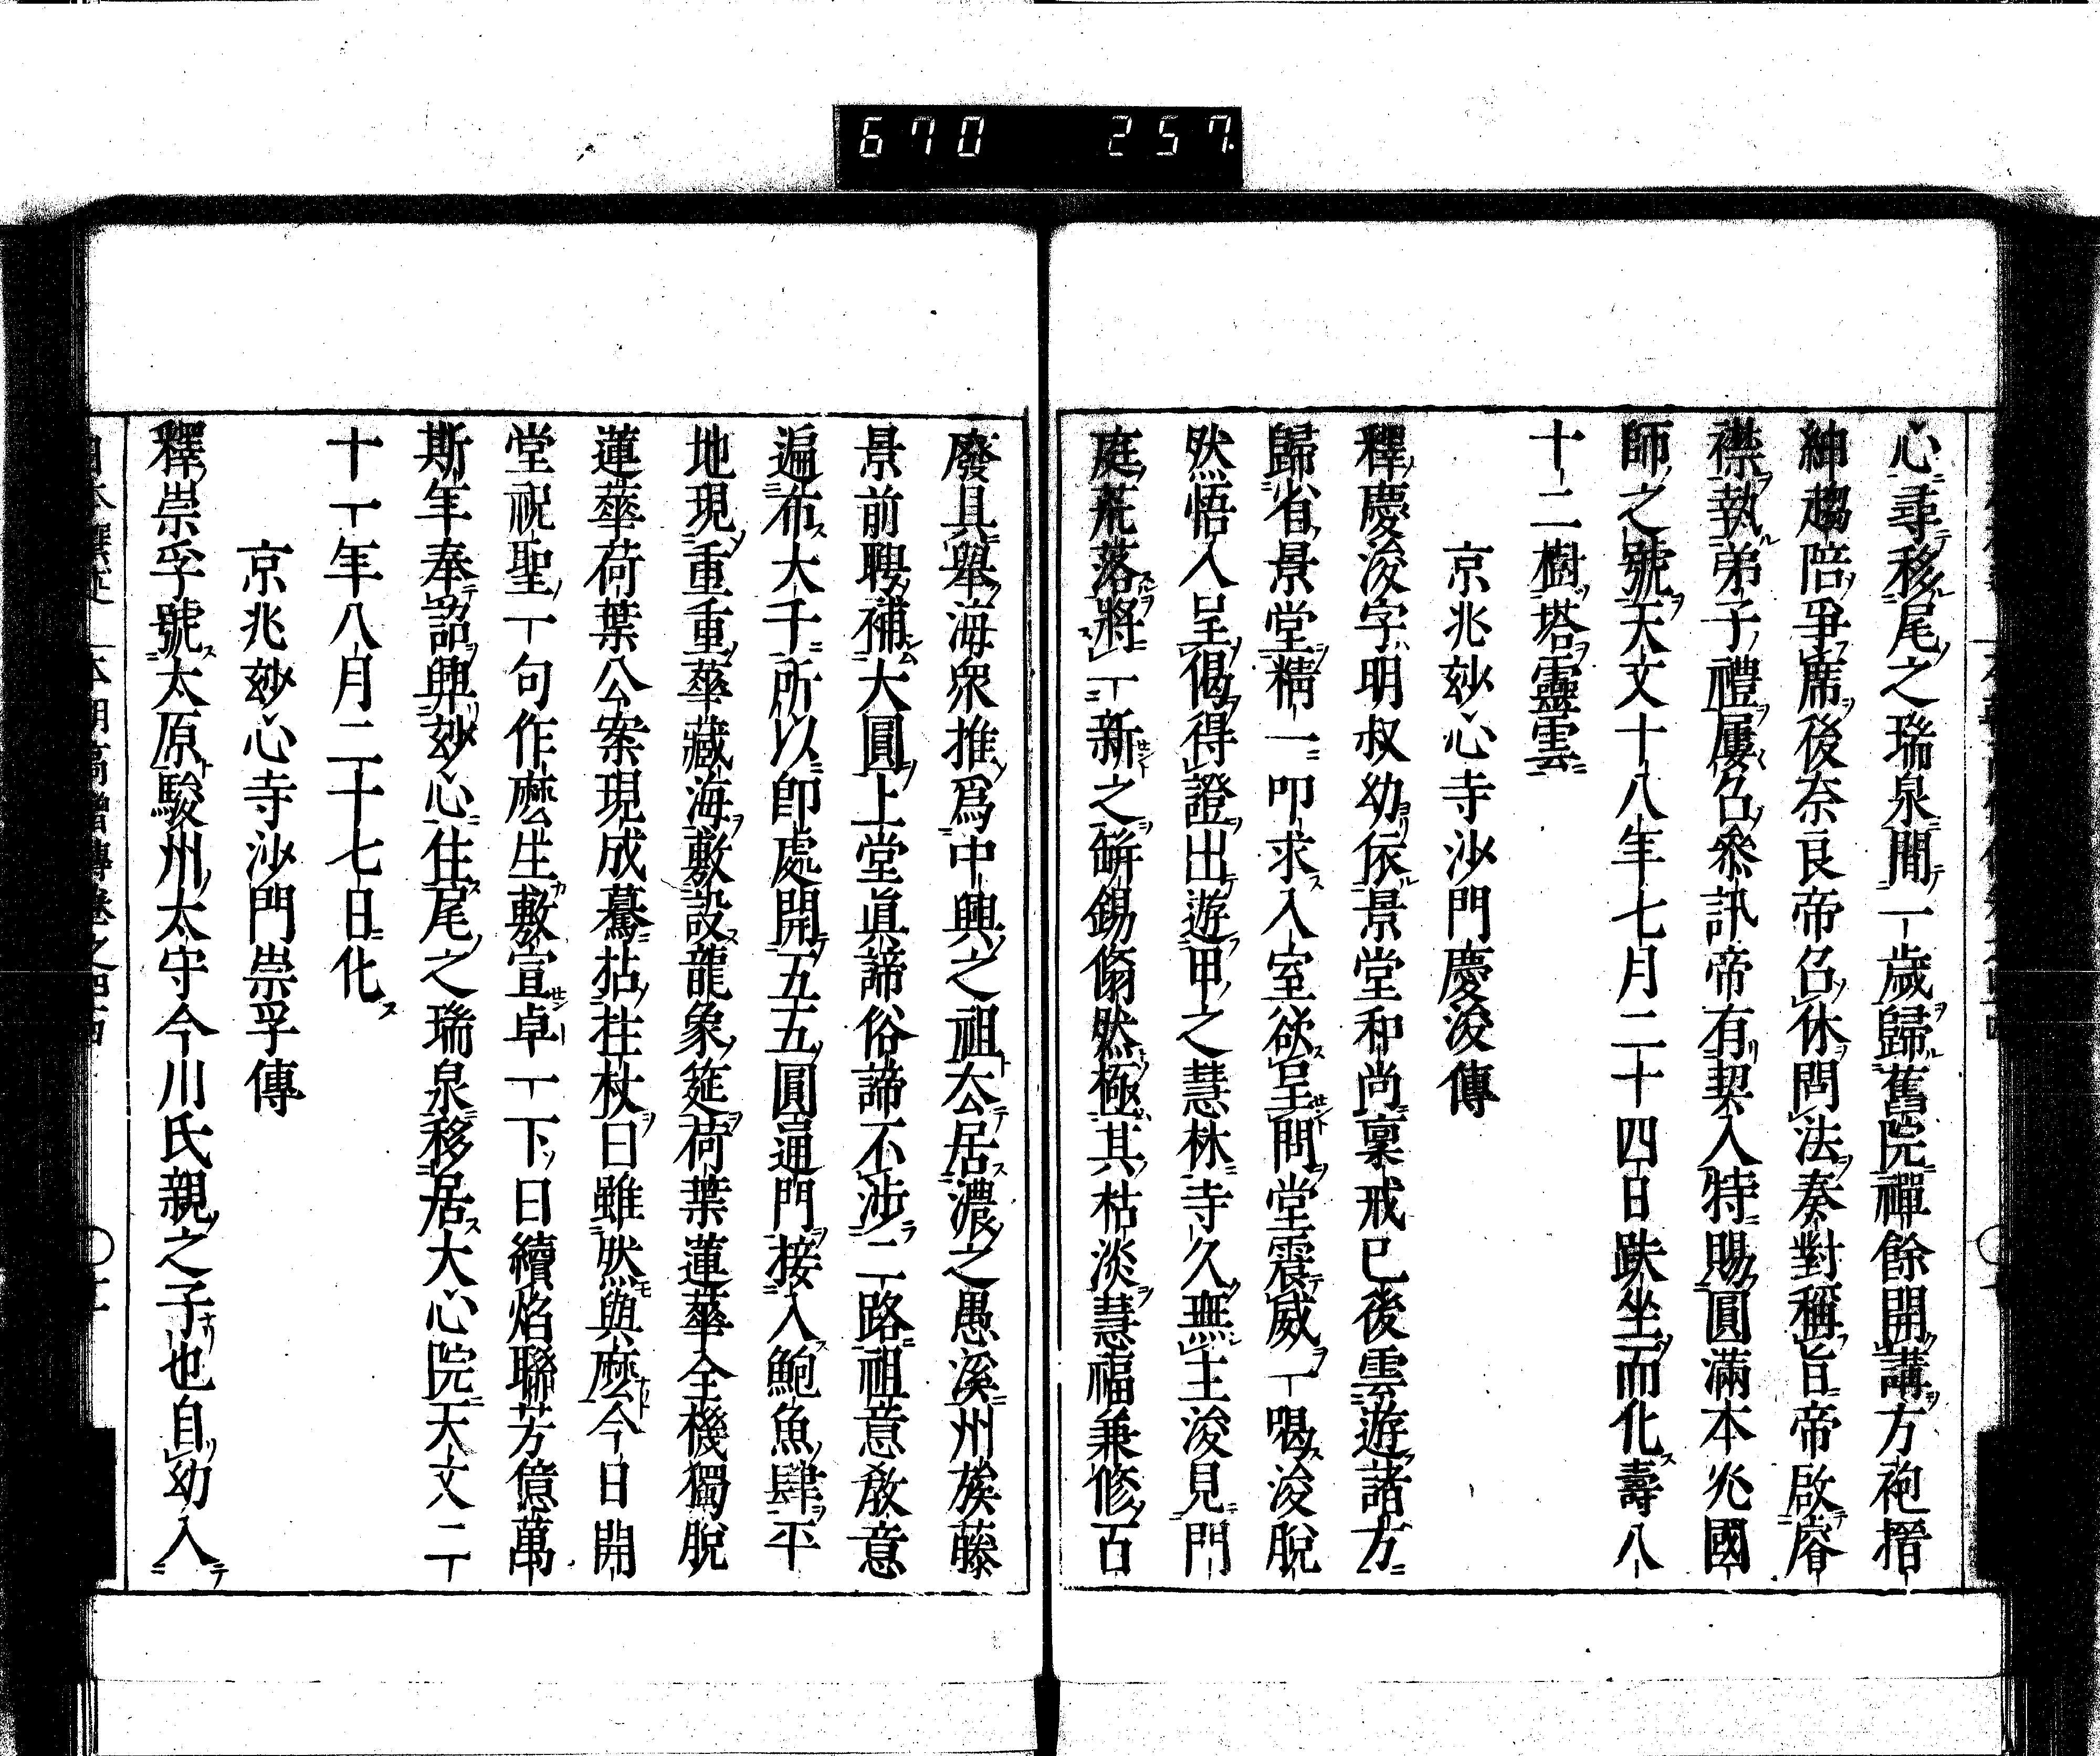 670 257
心尋移尾之瑞泉間一歲歸舊院禪餘開講方袍搢
紳趨陪爭席後奈良帝召休問法奏對稱旨帝啟睿
襟執弟子禮屢召叅訊帝有契入特賜圓滿本光國
師之號天文十八年七月二十四日趺坐而化壽八
十二樹塔靈雲
京兆玅心寺沙門慶浚傳
釋慶浚字明叔幼依景堂和尚稟戒已後雲遊諸方
歸省景堂精一叩求入室欲呈問堂震威一喝浚脫
然悟入呈偈得證出遊甲之慧林寺久無主浚見門
庭荒落將一新之缾錫翛然極其枯淡慧福兼修百
廢具舉海衆推爲中興之祖厺居濃之愚溪州族藤
景前聘補大圓上堂眞諦俗諦不涉二路祖意教意
遍布大千所以卽處開五五圓通門接入鮑魚肆平
地現重重華藏海敷設龍象筵荷葉蓮華全機獨脫
蓮華荷葉公案現成驀拈拄杖曰雖然與麽今日開
堂祝聖一句作麽生敷宣卓一下曰續焰聯芳億萬
斯年奉詔興玅心住尾之瑞泉移居大心院天文二
十一年八月二十七日化
京兆玅心寺沙門崇孚傳
釋崇孚號太原駿州太守今川氏親之子也自幼入